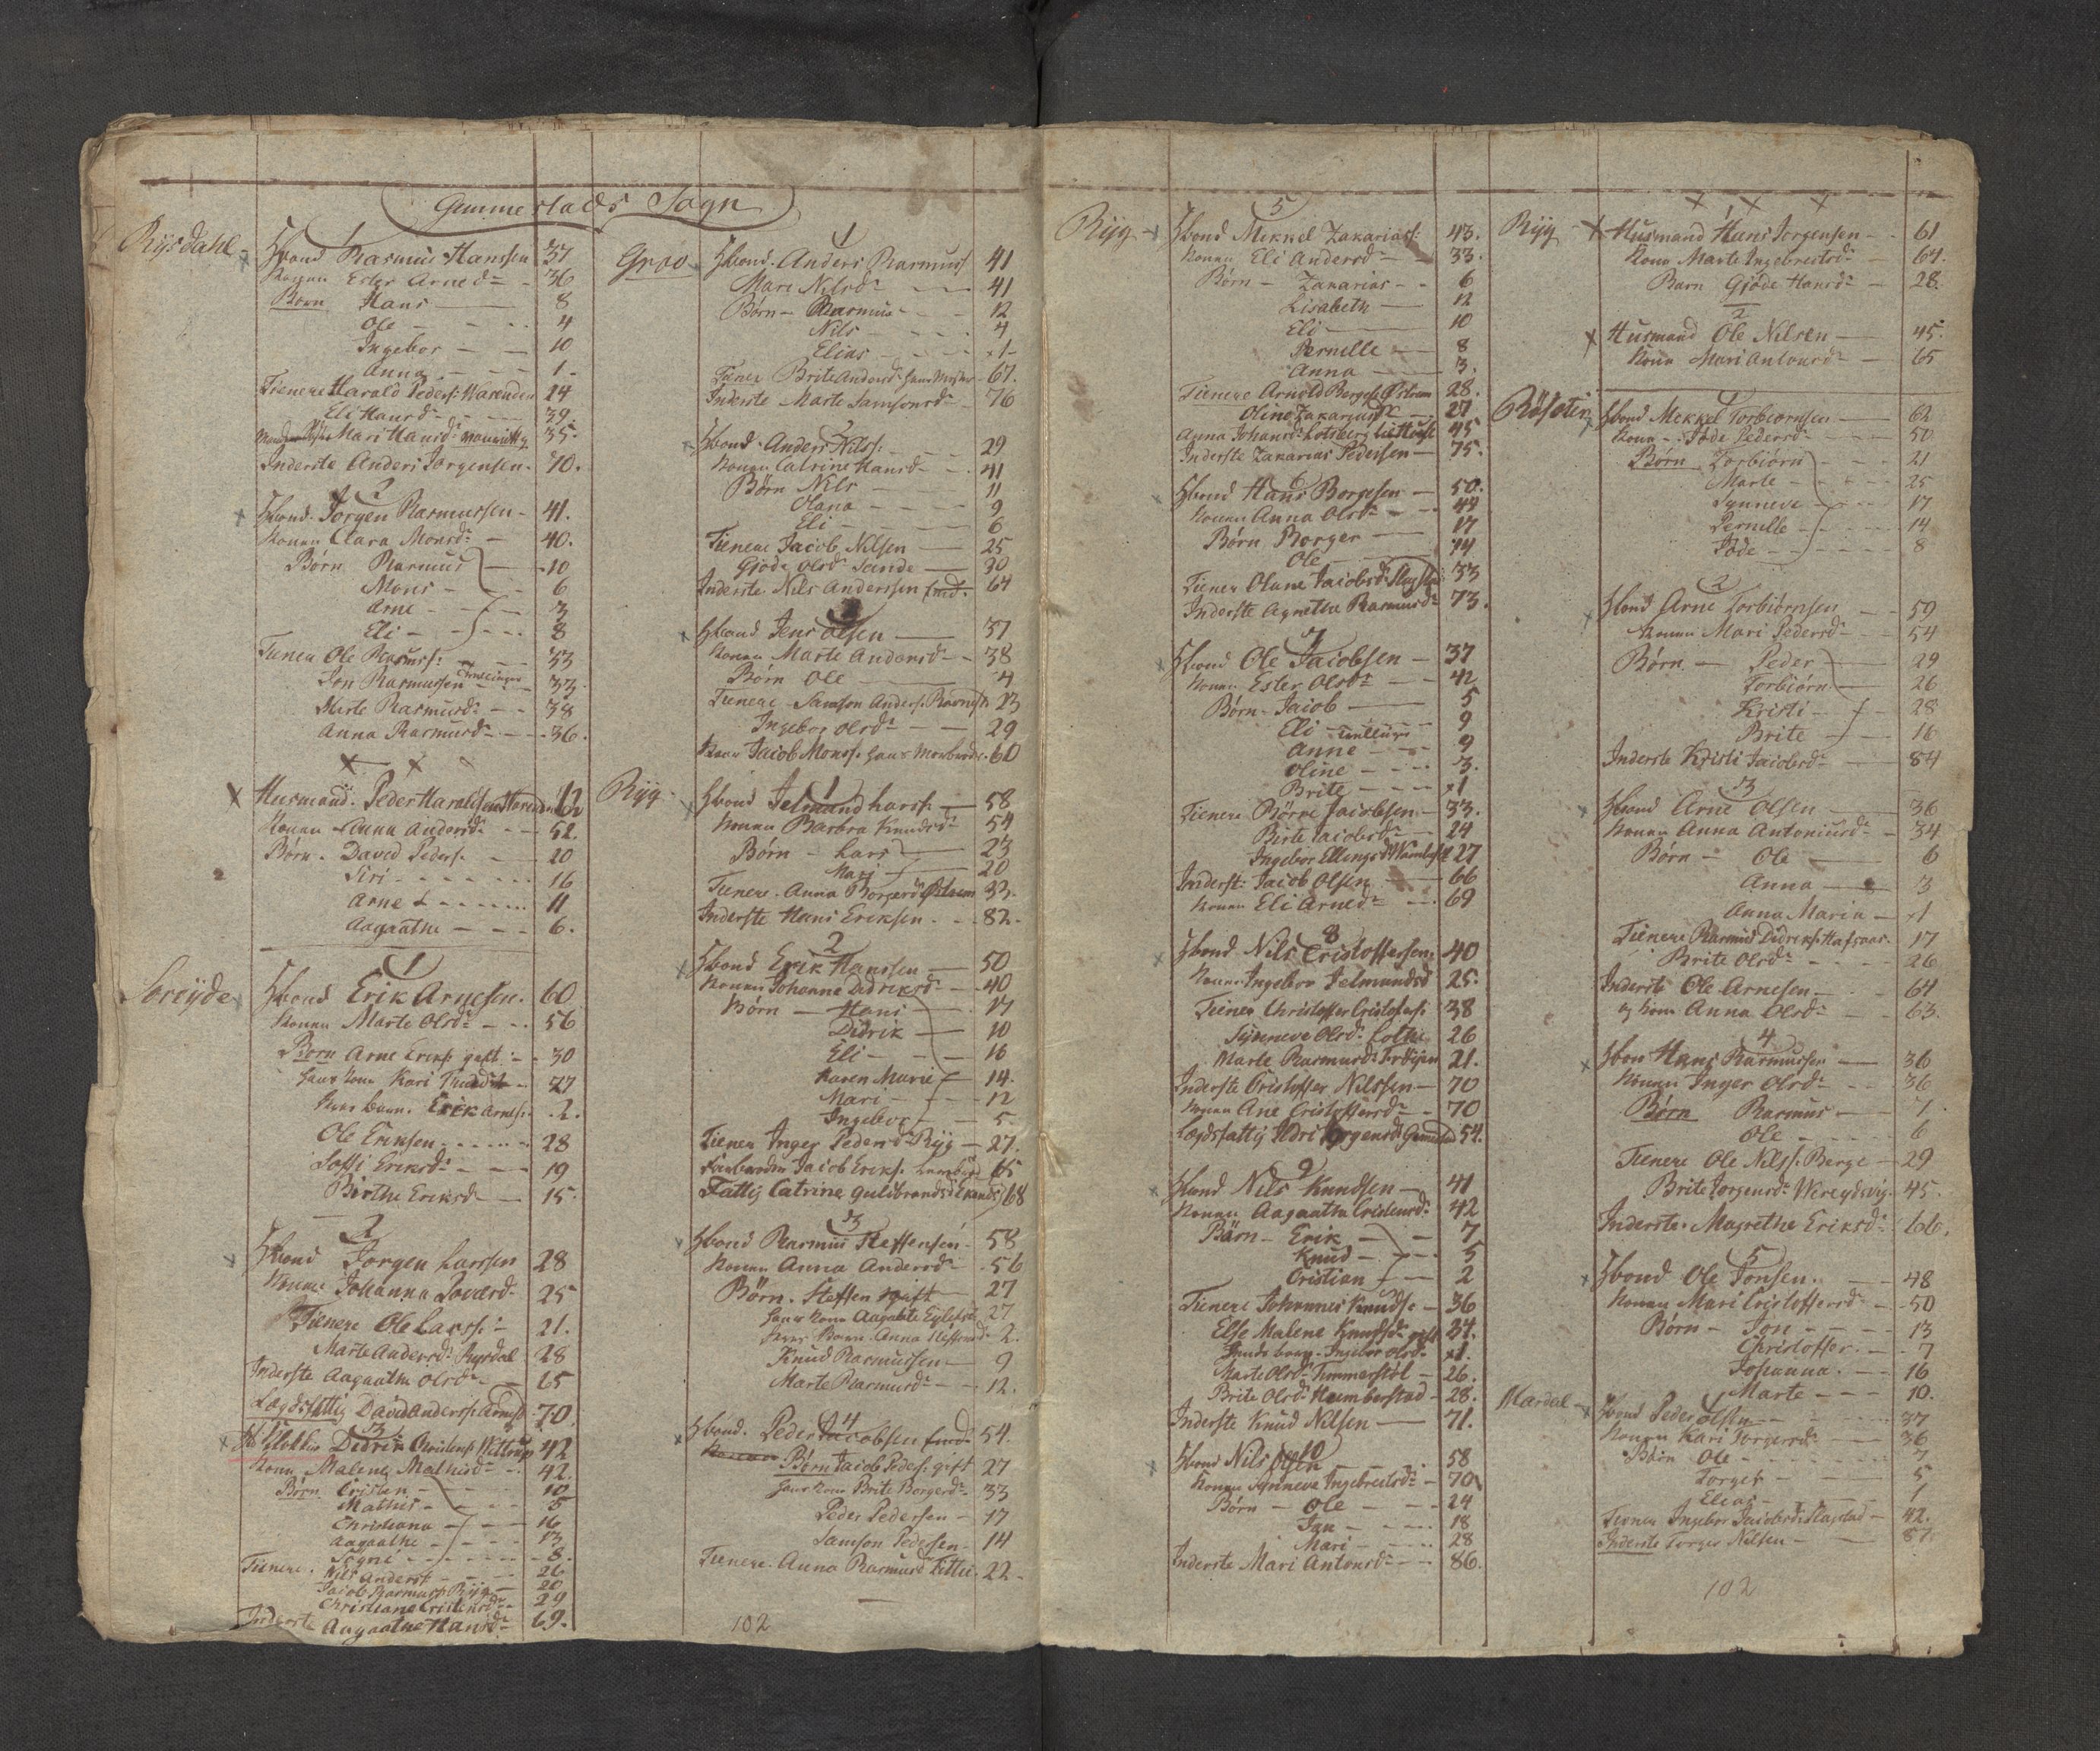 Gummestads Sogn
Rijsdahl
1
Hbond Rasmus Hanssen 37
Konen Ester Arned: 36
Børn Hans 8
Ole 4
Ingebor 10
Anna 1
Tienere Harald Peders: 24
Eli Hansd: 39
Mari Hansd: 35
Inderste Anders Jorgensen 70
2
Hbond Jorgen Rasmussen 41
Konen Clara Monsd: 40
Børn Rasmus 10
Mons 6
Arne 3
Eli 8
Tiener Ole Rasmuss: 53
Jon Rasmussen 33
Marte Rasmusd: 38
Anna Rasmusd: 36
Husmand Peder Haraldsen
Konen Anna Andersd: 52
Børn David Peders: 20
Siri 16
Arne 11
Aagaathe 6
Soreijde
1
Hbond Erik Arnesen 60
Konen Marte Olsd: 56
Børn Arne Eriks: gift 30
Hans Kone Kari 27
Erik Arnes: 2
Ole Eriksen 28
Soffi Eriksd: 19
Birthe Eriksd 15
2
Hbond Jorgen Larssen 28
Konene Johanna 25
Tienere Ole Larss: 21
Marte Andersd: Rijsdal 28
Inderste Aagaathe Olsd: 65
Lægdsfattig David Anderss: 70
3
Klokker Didrik 42
Kone Malene Mathisd: 42
Børn Cristen 10
Mathis 5
Christiana 16
Aagaathe 13
Signi 8
Tienere Nils Anders: 26
Jacob Rasmuss: Rijg 20
Christiane Cristensd: 29
Inderste Aagaathe Hansd: 69
Grov
1
Hbond Anders Rasmuss 41
Mari Nilsd: 41
Børn Rasmus 12
Nils 4
Elias 1
Tiener Brite Andersd: 67
Inderste Marte Samsonsd: 76
2
Hbond Anders Nilss: 29
Konen Catrine Hansd 41
Børn Nils 11
Olana 9
Eli 6
Tienere Jacob Nilsen 25
Gjøde Olsd Sande 30
Inderste Nils Anderssen 64
3
Hbond Jens Olsen 37
Konen Marte Andersd: 38
Børn Ole 4
Tienere Samson Anders: 23
Ingebor Olsd: 29
Jacob Monss: 60
Rijg
1
Hbond Jelmund Larss: 58
Konen Barbra Knudsd: 54
Børn Lars 23
Mari 20
Tienere Anna Borgersd: 33
Inderste Hans Eriksen 82
2
Hbond Erik Hanssen 50
Konen Johanne Didriksd: 40
Børn Hans 17
Didrik 10
Eli 16
Karen Marie 14
Mari 12
Ingebor 5
Tiener Inger Pedersd: Rijg 27
Jacob Eriks: 65
Fattig Catrine Guldbrandsd: 68
3
Hbond Rasmus Steffensen 58
Konen Anna Andersd: 56
Børn Steffen gift 27
Hans Kone Aagaate 27
Anna Stefensd: 2
Knud Rasmussen 9
Marte Rasmusd: 12
4
Hbond Peder Jacobsen 54
Børn Jacob Peders: gift 27
Hans Kone Brite Borgerd: 33
Peder Pedersen 17
Samson Pedersen 14
Tienere Anna Rasmusd: 22
102
Rijg
5
Hbond Mekkel Zakariass: 43
Konen Eli Andersd: 33
Børn Zakarias 6
Lisabeth 12
Eli 10
Pernelle 8
Anna 3
Tienere Arnold 28
Oline Zakariasd: 27
Anna Johansd: 45
Inderste Zakarias Pedersen 75
6
Hbond Hans Borgesen 50
Konen Anna Olsd: 44
Børn Borger 17
Ole 14
Tiener Olane Jacobsd: 33
Inderste Agnethe Rasmusd: 73
7
Hbond Ole Jacobsen 37
Konen Ester Olsd: 42
Børn Jacob 5
Eli 9
Anne 9
Oline 3
Brite 1
Tienere Børre Jacobsen 33
Birte Jacobsd: 24
Ingebor Ellingsd: 27
Inderst: Jacob Olsen 66
Konen Eli Arned: 69
8
Hbond Nils Cristoffersen 40
Konen Ingebor Jelmundsd 25
Tiener Christoffer Cristofers: 38
Synneve Olsd: Lothe 26
Marte Rasmusd: 21
Inderste Cristoffer Nilssen 70
Konen Ane Cristoffersd: 70
Lægdsfattig 54
9
Hbond Nils Knudsen 41
Konen Aagaathe Cristensd: 42
Børn Erik 7
Knud 5
Cristian 2
Tienere Johannes Knuds: 36
Else Malene Knudsd: gift 34
Ingebor Olsd: 1
Marte Olsd: 26
Brite Olsd: Heimberstad 28
Inderste Knud Nilsen 71
10
Hbond Nils Olsen 58
Konen Synneve Ingebretsd: 70
Børn Ole 24
Jan 18
Mari 28
Inderste Mari Antonsd: 86
Rijg
1
Husmand Hans Jorgensen 61
Kone Marte Ingebretsd: 64
Barn Gjøde Hansd: 28
2
Husmand Ole Nilsen 45
Kone Mari Antonsd: 65
Røseter
Hbond Mekkel Torbiørnsen 62
Kone Jøde Pedersd: 50
Børn Torbiørn 21
Marte 25
Synneve 17
Pernelle 14
Jøde 8
2
Hbond Arne Torbiørnsen 59
Konen Mari Pedersd: 54
Børn Peder 29
Torbiørn 26
Kristi 28
Brite 16
Inderste Kristi Jacobsd: 84
3
Hbond Arne Olsen 36
Konen Anna Antoniusd: 34
Børn Ole 6
Anna 3
Anna Maria 1
Tienere Rasmus Didriks: 17
Brite Olsd: 26
Inderste Ole Arnesen 64
og Kone Anna Olsd: 63
4
Hbon Hans Rasmussen 36
Konen Inger Olsd: 36
Børn Rasmus 7
Ole 6
Tienere Ole Nilss: Berge 29
Brite Jorgensd: 45
Inderste Magrethe Eriksd: 66
5
Hbond Ole Jonsen 48
Konen Mari Cristoffersd: 50
Børn Jon 13
Christoffer 7
Johanna 16
Marte 10
Mardal
1
Hbond Peder Olsen 37
Konen Kari Torgersd: 36
Børn Ole 7
Torger 5
Elias 1
Tiener Ingebor Jacobsd: 42
Inderste Torger Nilsen 87
102